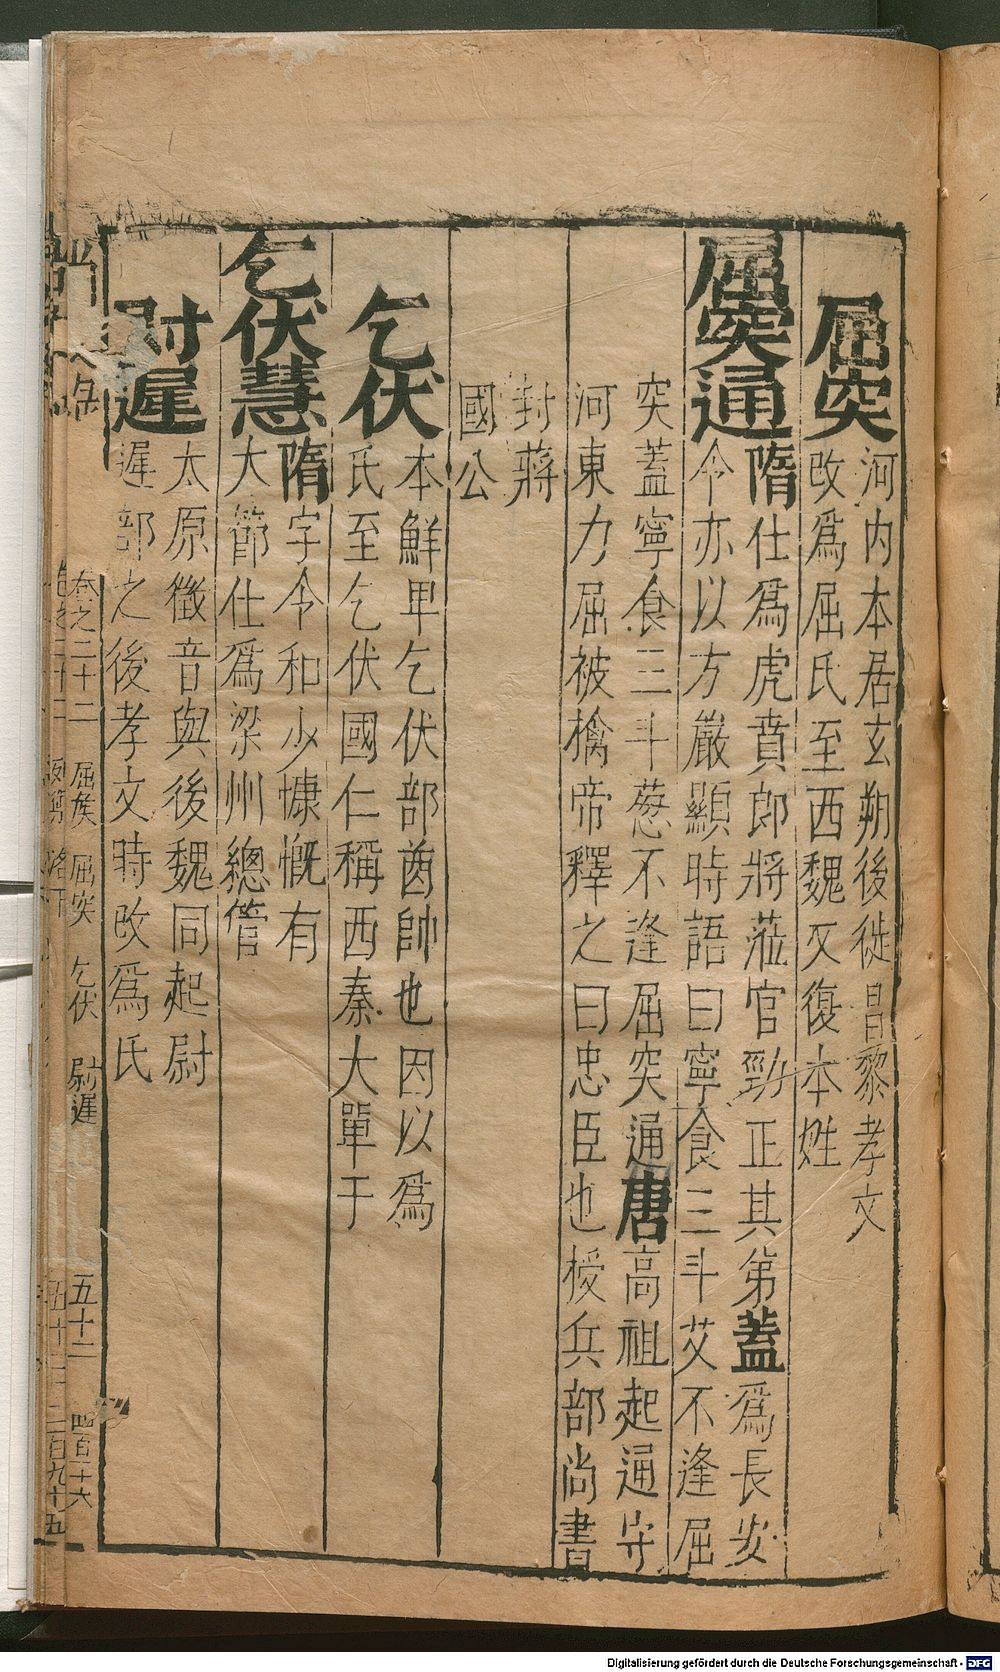 屈突
河内本居玄朔後徙昌黎孝文
改爲屈氏至西魏又復本姓
屈突通
隋仕爲虎賁郎將蒞官勁正其弟蓋爲長安
令亦以方嚴顯時語曰寧食三斗艾不逢屈
突蓋寧食三斗葱不逢屈突通唐高祖起通守
河東力屈被擒帝釋之曰忠臣也授兵部尚書
封蔣
國公
乞伏
本鮮卑乞伏部酋帥也因以爲
氏至乞伏國仁稱西秦大單于
乞伏慧
隋字令和少慷慨有
大節仕爲梁州總管
尉遲
太原徵音與後魏同起尉
遲部之後孝文時改爲氏
卷之二十二 屈侯 屈突 乞伏 尉遲 五十二 四百二十六
Digitalisierung gefördert durch die Deutsche Forschungsgemeinschaft - DFG